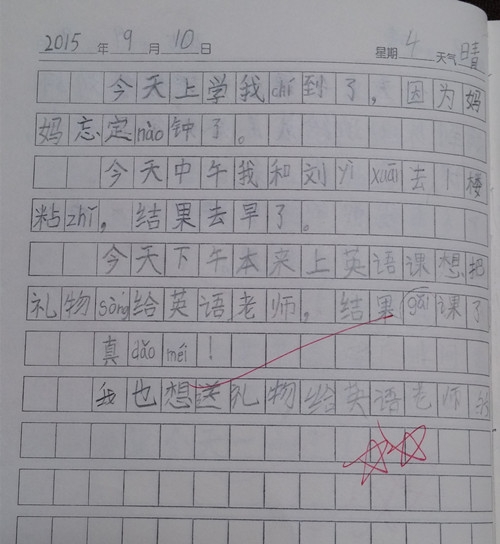 2015 年 9 月 10 日 星期 4 天气 晴
今天上学我chí到了，因为妈
妈忘定nào钟了。
今天中午我和刘yì xuān去1楼
粘zhī，结果去早了。
今天下午本来上英语课想把
礼物sòng给英语老师，结果gǎi课了
真dǎo méi！
我也想送礼物给英语老师